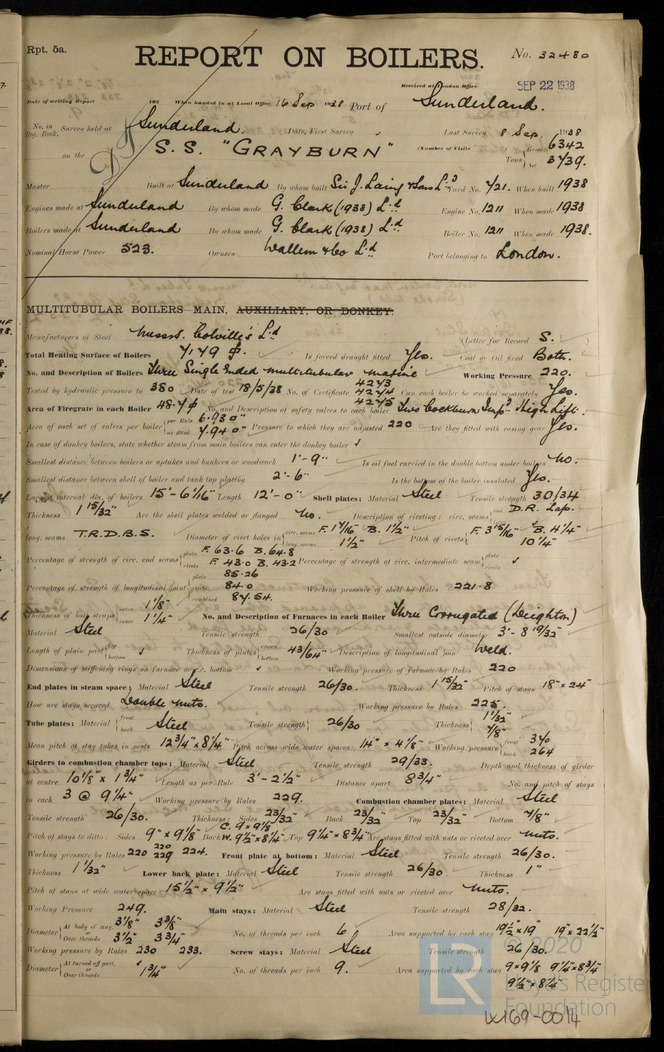 Rpt. 5a.
REPORT ON BOILERS.
No. 32480
Received at London Office SEP 22 1938
Date of writing Report 193 When handed in at Local Office 16 Sep 1938 Port of Sunderland.
No. in Reg. Book. Survey held at Sunderland. Date, First Survey Last Survey 8 Sep. 1938
on the S.S. "GRAYBURN" (Number of Visits Tons Gross 6342 Net 3739.
Master Built at Sunderland By whom built Sir J. Laing & Sons Ld. Yard No. 721. When built 1938
Engines made at Sunderland By whom made G. Clark (1938) Ld. Engine No. 1211 When made 1938
Boilers made at Sunderland By whom made G. Clark (1938) Ld. Boiler No. 1211 When made 1938.
Nominal Horse Power 523. Owners Wallem & Co Ld Port belonging to London.
MULTITUBULAR BOILERS MAIN, AUXILIARY, OR DONKEY.
Manufacturers of Steel Messrs. Colville's Ld (Letter for Record S.
Total Heating Surface of Boilers 7179 Is forced draught fitted Yes. Coal or Oil fired Both.
No. and Description of Boilers Three Single Ended multitubular marine Working Pressure 220.
Tested by hydraulic pressure to 380 Date of test 18/5/38 No. of Certificate 4273 4274 4275 Can each boiler be worked separately Yes.
Area of Firegrate in each Boiler 48.7 No. and Description of safety valves to each boiler Two Cockburn Impd. High Lift.
Area of each set of valves per boiler per Rule 6.930" as fitted 7.940" Pressure to which they are adjusted 220 Are they fitted with easing gear Yes.
In case of donkey boilers, state whether steam from main boilers can enter the donkey boiler
Smallest distance between boilers or uptakes and bunkers or woodwork 1'-9" Is oil fuel carried in the double bottom under boilers No.
Smallest distance between shell of boiler and tank top plating 2'-6" Is the bottom of the boiler insulated Yes.
Largest internal dia. of boilers 15'-6 1/16" Length 12'-0" Shell plates: Material Steel Tensile strength 30/34
Thickness 1 15/32" Are the shell plates welded or flanged No. Description of riveting: circ. seams end D.R. Lap.
long. seams T.R.D.B.S. Diameter of rivet holes in circ. seams F. 1 7/16" B. 1 1/2" long. seams 1 1/2" Pitch of rivets F. 3 15/16" B. 4 1/4" 10 1/4"
Percentage of strength of circ. end seams plate F. 63.6 B. 64.8 rivets F. 43.0 B. 43.2 Percentage of strength of circ. intermediate seam plate rivets
Percentage of strength of longitudinal joint plate 85.26 rivets 84.0 combined 87.54. Working pressure of shell by Rules 221.8
Thickness of butt straps outer 1 1/8" inner 1 1/4" No. and Description of Furnaces in each Boiler Three Corrugated (Deighton)
Material Steel Tensile strength 26/30 Smallest outside diameter 3'-8 19/32"
Length of plain part top bottom Thickness of plates crown bottom 43/64" Description of longitudinal joint Weld.
Dimensions of stiffening rings on furnace or c.c. bottom Working pressure of furnace by Rules 220
End plates in steam space: Material Steel Tensile strength 26/30. Thickness 1 15/32" Pitch of stays 18" x 24"
How are stays secured Double nuts. Working pressure by Rules 225.
Tube plates: Material front back Steel Tensile strength 26/30 Thickness 1 1/32" 7/8"
Mean pitch of stay tubes in nests 12 3/4" x 8 1/4" Pitch across wide water spaces 14" x 4 1/8" Working pressure front 340 back 264
Girders to combustion chamber tops: Material Steel Tensile strength 29/33. Depth and thickness of girder
at centre 10 1/8" x 1 3/4" Length as per Rule 3'-2 1/2" Distance apart 8 3/4" No. and pitch of stays
in each 3 @ 9 1/4" Working pressure by Rules 229. Combustion chamber plates: Material Steel
Tensile strength 26/30. Thickness: Sides 23/32" Back 23/32" Top 23/32" Bottom 7/8"
Pitch of stays to ditto: Sides 9" x 9 1/8" Back C. 9 x 9 1/8 W. 9 1/2 x 8 1/4" Top 9 1/4" x 8 3/4" Are stays fitted with nuts or riveted over nuts.
Working pressure by Rules 220 220 229 224. Front plate at bottom: Material Steel Tensile strength 26/30.
Thickness 1 1/32" Lower back plate: Material Steel Tensile strength 26/30 Thickness 1"
Pitch of stays at wide water space 15 1/2" x 9 1/2" Are stays fitted with nuts or riveted over Nuts.
Working Pressure 249. Main stays: Material Steel Tensile strength 28/32.
Diameter At body of stay, 3 1/8" 3 3/8" or Over threads 3 1/2" 3 3/4" No. of threads per inch 6 Area supported by each stay 19 1/2" x 19" 19 x 22 1/2"
Working pressure by Rules 230 233. Screw stays: Material Steel Tensile strength 26/30.
Diameter At turned off part, or Over threads 1 3/4" No. of threads per inch 9. Area supported by each stay 9 x 9 1/8 9 1/4 x 8 3/4" 9 1/2 x 8 1/4"
LR
2020
Lloyd's Register
Foundation
W169-0014